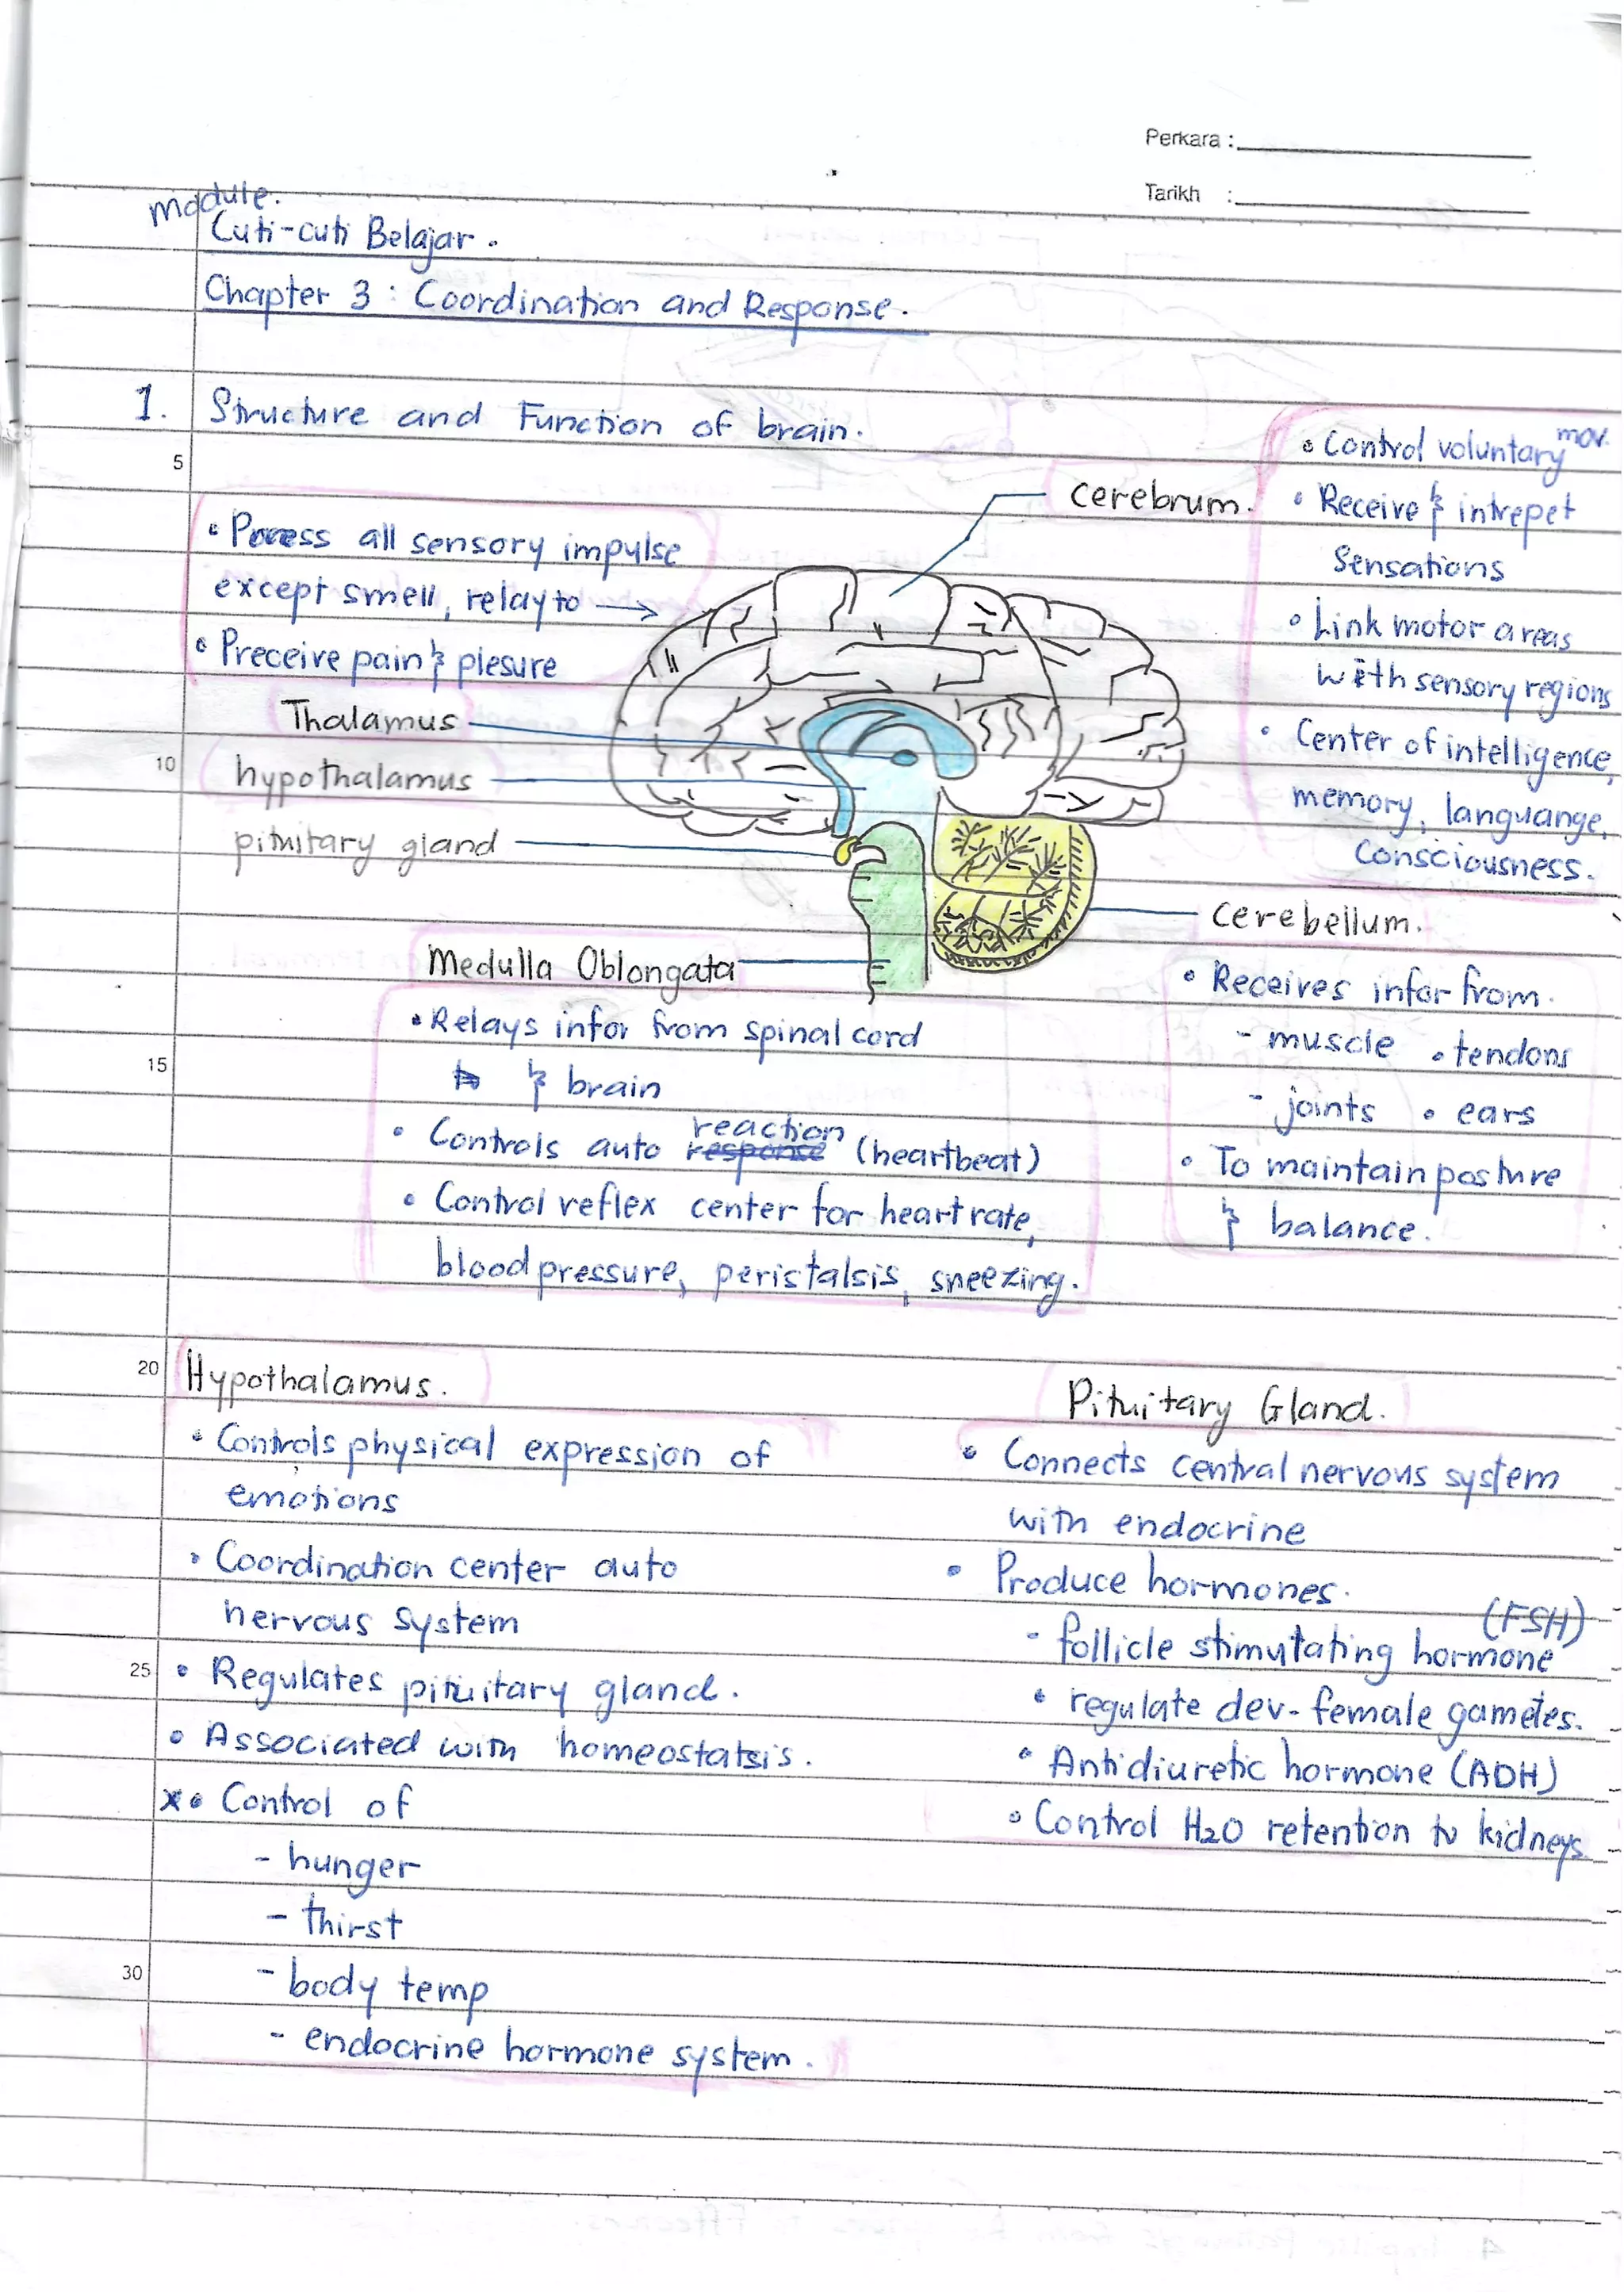 Perkara :
Tarikh :
module.
Cuti-cuti Belajar.
Chapter 3 : Coordination and Response.
1. Structure and Function of brain.
5
• Process all sensory impulse
except smell, relay to →
• Preceive pain & plesure
Thalamus
10
hypothalamus
pituitary gland
Cerebrum.
• Control voluntary mov.
• Receive & intrepet
Sensations
• Link motor areas
with sensory regions
• Center of intelligence,
memory, languange,
Consciousness.
Cerebellum.
• Receives infor from.
- muscle • tendons
- joints • ears
• To maintain posture
& balance.
Medulla Oblongata
• Relays infor from spinal cord
15
to & brain
• Controls auto response reaction (heartbeat)
• Control reflex center for heart rate,
blood pressure, peristalsis, sneezing.
20
Hypothalamus.
• Controls physical expression of
emotions
• Coordination center auto
nervous system
25
• Regulates pituitary gland.
• Associated with homeostatsis.
x • Control of
- hunger
- thirst
30
- body temp
- endocrine hormone system.
Pituitary Gland.
• Connects central nervous system
with endocrine
• Produce hormones.
- follicle stimutating hormone (FSH)
• regulate dev. female gametes.
• Antidiuretic hormone (ADH)
• Control H2O retention tv kidneys.